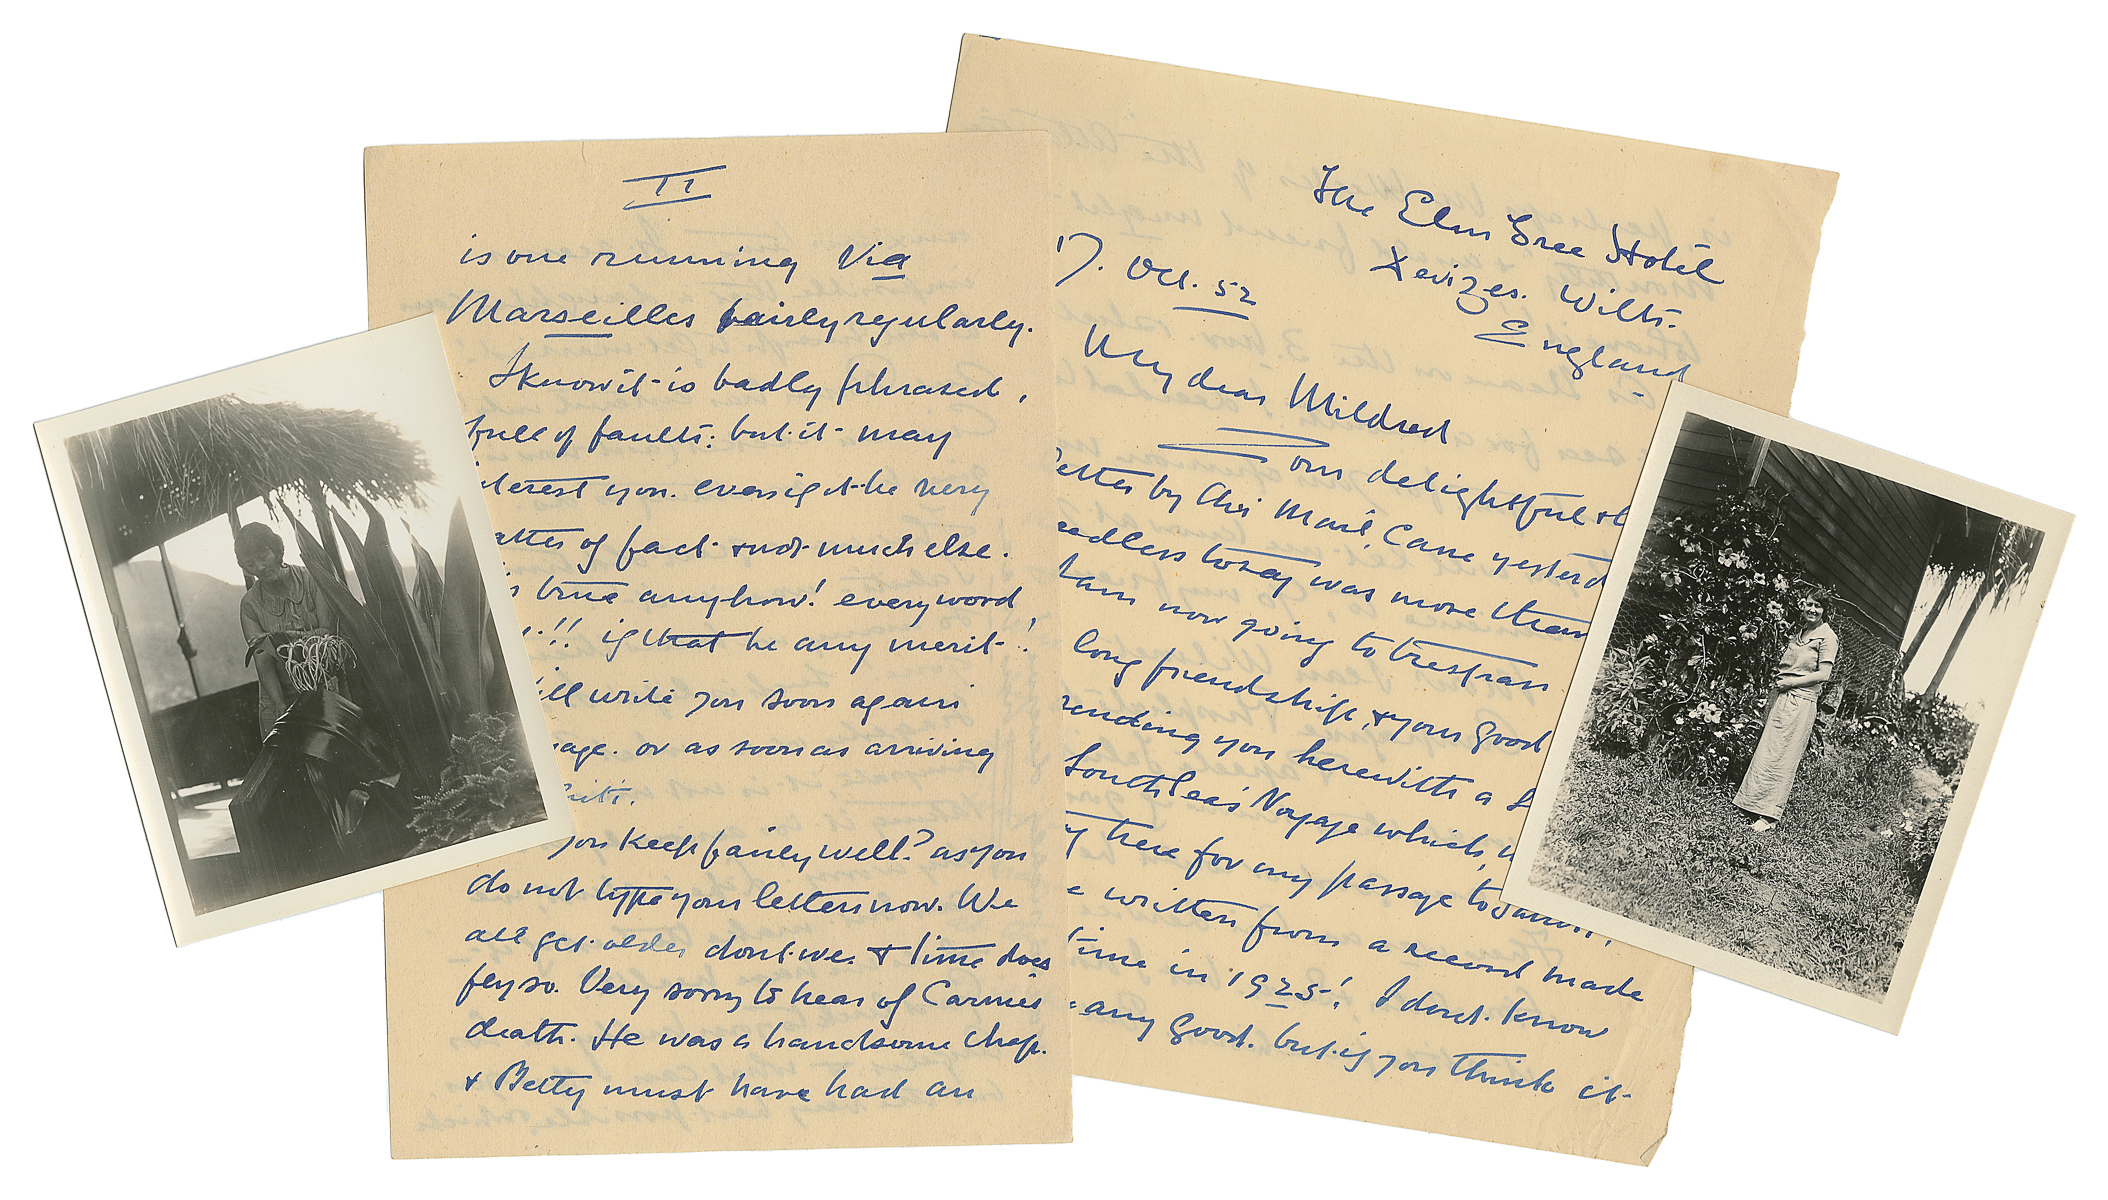 The Elm Tree Hotel
Devizes. Wilts.
England
17. Oct. 52
My dear Mildred
Your delightful
letter by Air Mail, Came
needless to say was more than
I am now going to trespass
long friendship, & your good
sending you herewith a
South Seas Voyage which,
there for my passage to
written from a record made
time in 1925! I dont. know
any good. but. if you think it.
II
is one running Via
Marseilles fairly regularly.
I know it is badly phrased,
full of faults: but it may
interest you. even if it be very
matter of fact & not much else.
true anyhow! every word
if that be any merit!
will write you soon again
or as soon as arriving
you keep fairly well? as you
do not type your letters now. We
all get older dont we. & time does
fly so. Very sorry to hear of
death. He was a handsome chap.
& Betty must have had an